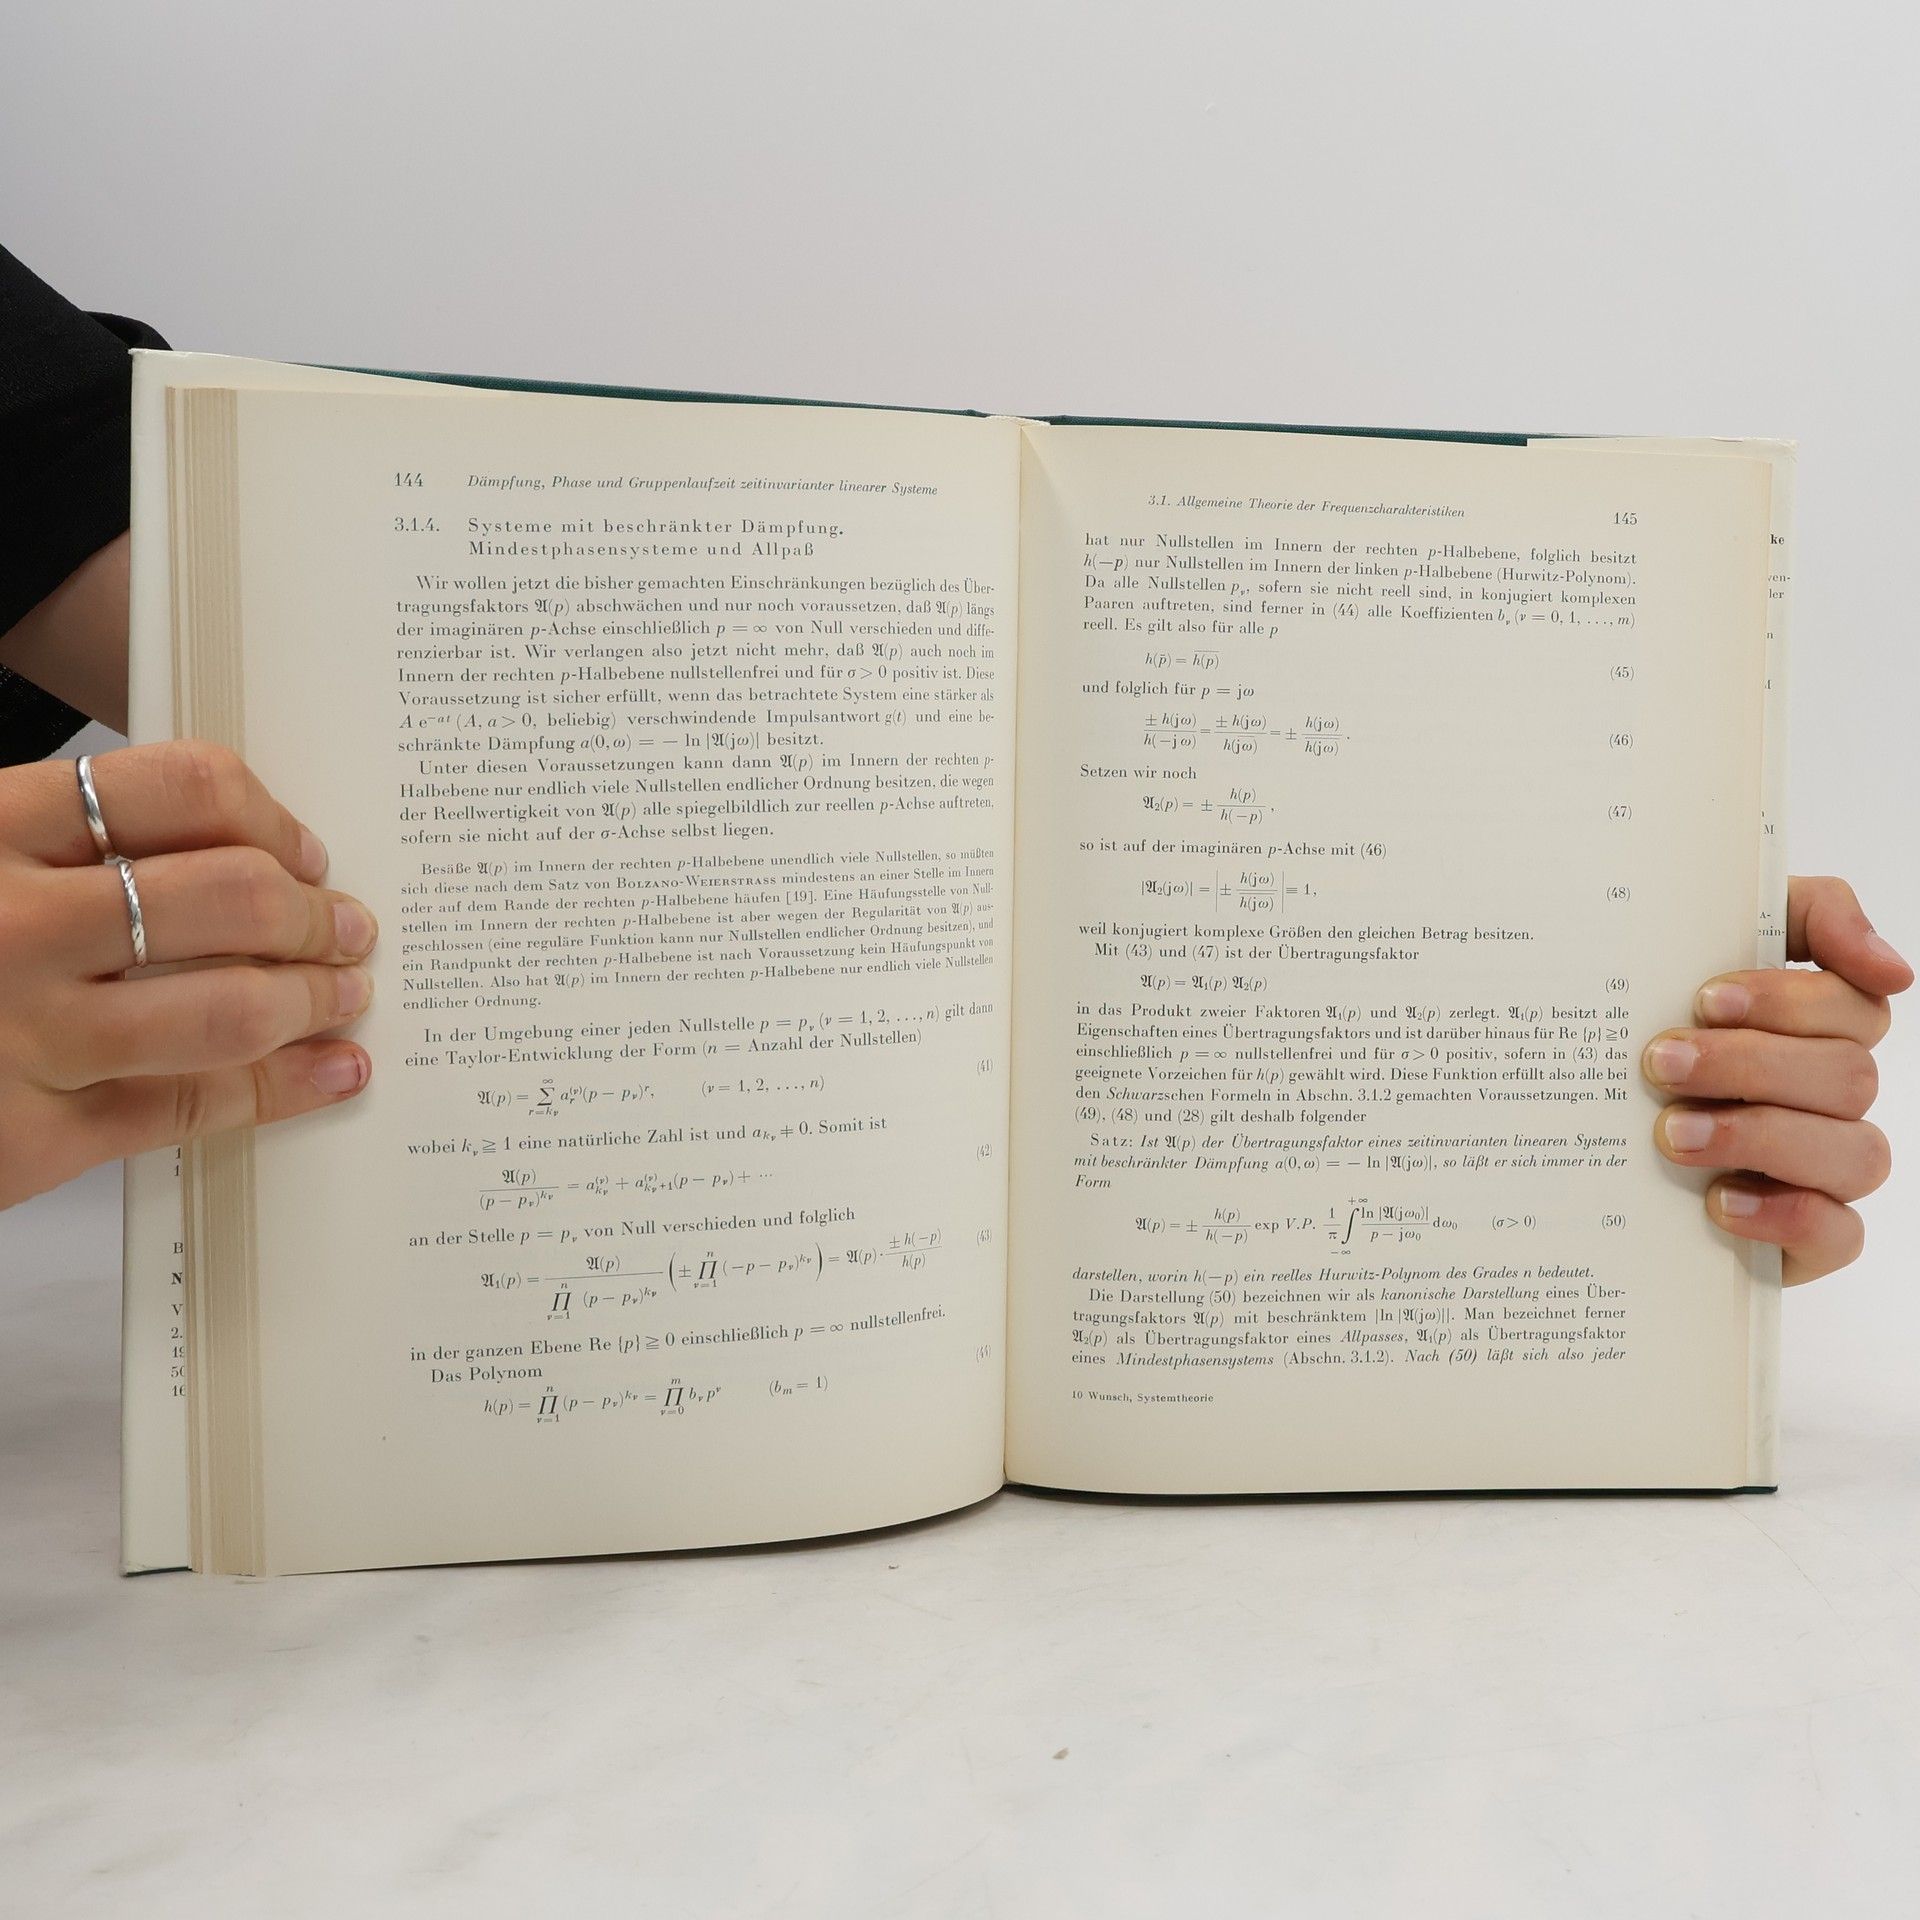 144 Dämpfung, Phase und Gruppenlaufzeit zeitinvarianter linearer Systeme
3.1.4. Systeme mit beschränkter Dämpfung.
Mindestphasensysteme und Allpaß
Wir wollen jetzt die bisher gemachten Einschränkungen bezüglich des Über-
tragungsfaktors 𝔄(p) abschwächen und nur noch voraussetzen, daß 𝔄(p) längs
der imaginären p-Achse einschließlich p = ∞ von Null verschieden und diffe-
renzierbar ist. Wir verlangen also jetzt nicht mehr, daß 𝔄(p) auch noch im
Innern der rechten p-Halbebene nullstellenfrei und für σ > 0 positiv ist. Diese
Voraussetzung ist sicher erfüllt, wenn das betrachtete System eine stärker als
A e^{−at} (A, a > 0, beliebig) verschwindende Impulsantwort g(t) und eine be-
schränkte Dämpfung a(0, ω) = − ln |𝔄(jω)| besitzt.
Unter diesen Voraussetzungen kann dann 𝔄(p) im Innern der rechten p-
Halbebene nur endlich viele Nullstellen endlicher Ordnung besitzen, die wegen
der Reellwertigkeit von 𝔄(p) alle spiegelbildlich zur reellen p-Achse auftreten,
sofern sie nicht auf der σ-Achse selbst liegen.
Besäße 𝔄(p) im Innern der rechten p-Halbebene unendlich viele Nullstellen, so müßten
sich diese nach dem Satz von BOLZANO-WEIERSTRASS mindestens an einer Stelle im Innern
oder auf dem Rande der rechten p-Halbebene häufen [19]. Eine Häufungsstelle von Null-
stellen im Innern der rechten p-Halbebene ist aber wegen der Regularität von 𝔄(p) aus-
geschlossen (eine reguläre Funktion kann nur Nullstellen endlicher Ordnung besitzen), und
ein Randpunkt der rechten p-Halbebene ist nach Voraussetzung kein Häufungspunkt von
Nullstellen. Also hat 𝔄(p) im Innern der rechten p-Halbebene nur endlich viele Nullstellen
endlicher Ordnung.
In der Umgebung einer jeden Nullstelle p = p_ν (ν = 1, 2, ..., n) gilt dann
eine Taylor-Entwicklung der Form (n = Anzahl der Nullstellen)
𝔄(p) = ∑_{r=k_ν}^{∞} a_r^{(ν)} (p − p_ν)^r, (ν = 1, 2, ..., n) (41)
wobei k_ν ≧ 1 eine natürliche Zahl ist und a_{k_ν} ≠ 0. Somit ist
𝔄(p) / (p − p_ν)^{k_ν} = a_{k_ν}^{(ν)} + a_{k_ν+1}^{(ν)} (p − p_ν) + ··· (42)
an der Stelle p = p_ν von Null verschieden und folglich
𝔄₁(p) = 𝔄(p) / ∏_{ν=1}^{n} (p − p_ν)^{k_ν} (± ∏_{ν=1}^{n} (−p − p_ν)^{k_ν}) = 𝔄(p) · ± h(−p) / h(p) (43)
in der ganzen Ebene Re {p} ≧ 0 einschließlich p = ∞ nullstellenfrei.
Das Polynom
h(p) = ∏_{ν=1}^{n} (p − p_ν)^{k_ν} = ∏_{ν=0}^{m} b_ν p^ν (b_m = 1) (44)
3.1. Allgemeine Theorie der Frequenzcharakteristiken 145
hat nur Nullstellen im Innern der rechten p-Halbebene, folglich besitzt
h(−p) nur Nullstellen im Innern der linken p-Halbebene (Hurwitz-Polynom).
Da alle Nullstellen p_ν, sofern sie nicht reell sind, in konjugiert komplexen
Paaren auftreten, sind ferner in (44) alle Koeffizienten b_ν (ν = 0, 1, ..., m)
reell. Es gilt also für alle p
h(p̄) = \overline{h(p)} (45)
und folglich für p = jω
± h(jω) / h(−jω) = ± h(jω) / h(\overline{jω}) = ± h(jω) / \overline{h(jω)} . (46)
Setzen wir noch
𝔄₂(p) = ± h(p) / h(−p) , (47)
so ist auf der imaginären p-Achse mit (46)
|𝔄₂(jω)| = |± h(jω) / \overline{h(jω)}| ≡ 1, (48)
weil konjugiert komplexe Größen den gleichen Betrag besitzen.
Mit (43) und (47) ist der Übertragungsfaktor
𝔄(p) = 𝔄₁(p) 𝔄₂(p) (49)
in das Produkt zweier Faktoren 𝔄₁(p) und 𝔄₂(p) zerlegt. 𝔄₁(p) besitzt alle
Eigenschaften eines Übertragungsfaktors und ist darüber hinaus für Re {p} ≧ 0
einschließlich p = ∞ nullstellenfrei und für σ > 0 positiv, sofern in (43) das
geeignete Vorzeichen für h(p) gewählt wird. Diese Funktion erfüllt also alle bei
den Schwarzschen Formeln in Abschn. 3.1.2 gemachten Voraussetzungen. Mit
(49), (48) und (28) gilt deshalb folgender
Satz: Ist 𝔄(p) der Übertragungsfaktor eines zeitinvarianten linearen Systems
mit beschränkter Dämpfung a(0, ω) = − ln |𝔄(jω)|, so läßt er sich immer in der
Form
𝔄(p) = ± h(p) / h(−p) exp V.P. 1/π ∫_{−∞}^{+∞} ln |𝔄(jω₀)| / (p − jω₀) dω₀ (σ > 0) (50)
darstellen, worin h(−p) ein reelles Hurwitz-Polynom des Grades n bedeutet.
Die Darstellung (50) bezeichnen wir als kanonische Darstellung eines Über-
tragungsfaktors 𝔄(p) mit beschränktem |ln |𝔄(jω)||. Man bezeichnet ferner
𝔄₂(p) als Übertragungsfaktor eines Allpasses, 𝔄₁(p) als Übertragungsfaktor
eines Mindestphasensystems (Abschn. 3.1.2). Nach (50) läßt sich also jeder
10 Wunsch, Systemtheorie